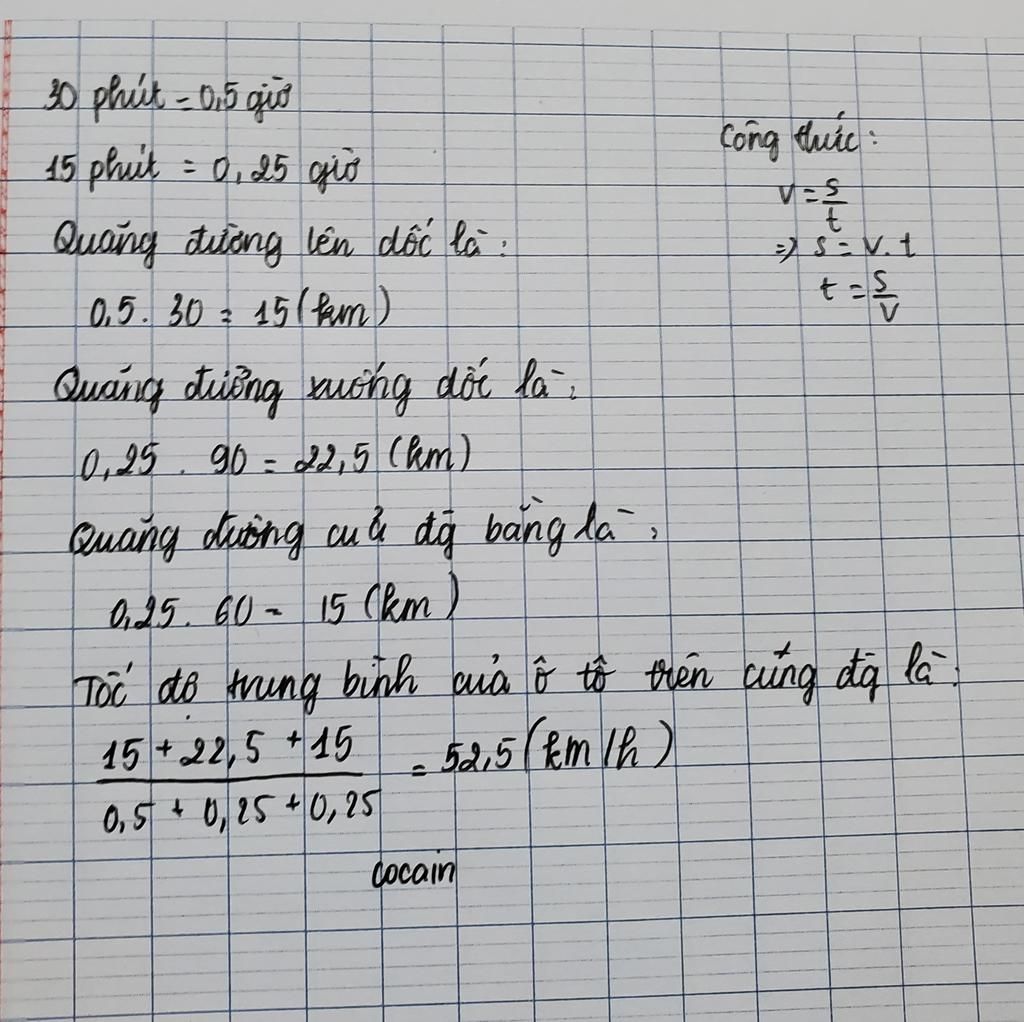 30 phút = 0,5 giờ
15 phút = 0,25 giờ
Quãng đường lên dốc là:
0,5. 30 = 15 (km)
Quãng đường xuống dốc là:
0,25 . 90 = 22,5 (km)
Quãng đường cuả đg bằng là:
0,25. 60 = 15 (km)
Tốc độ trung bình cuả ô tô trên cứng đg là:
15 + 22,5 + 15
0,5 + 0,25 + 0,25
= 52,5 (km/h)
cocain
Công thức:
v = s/t
=> s = v.t
t = s/v